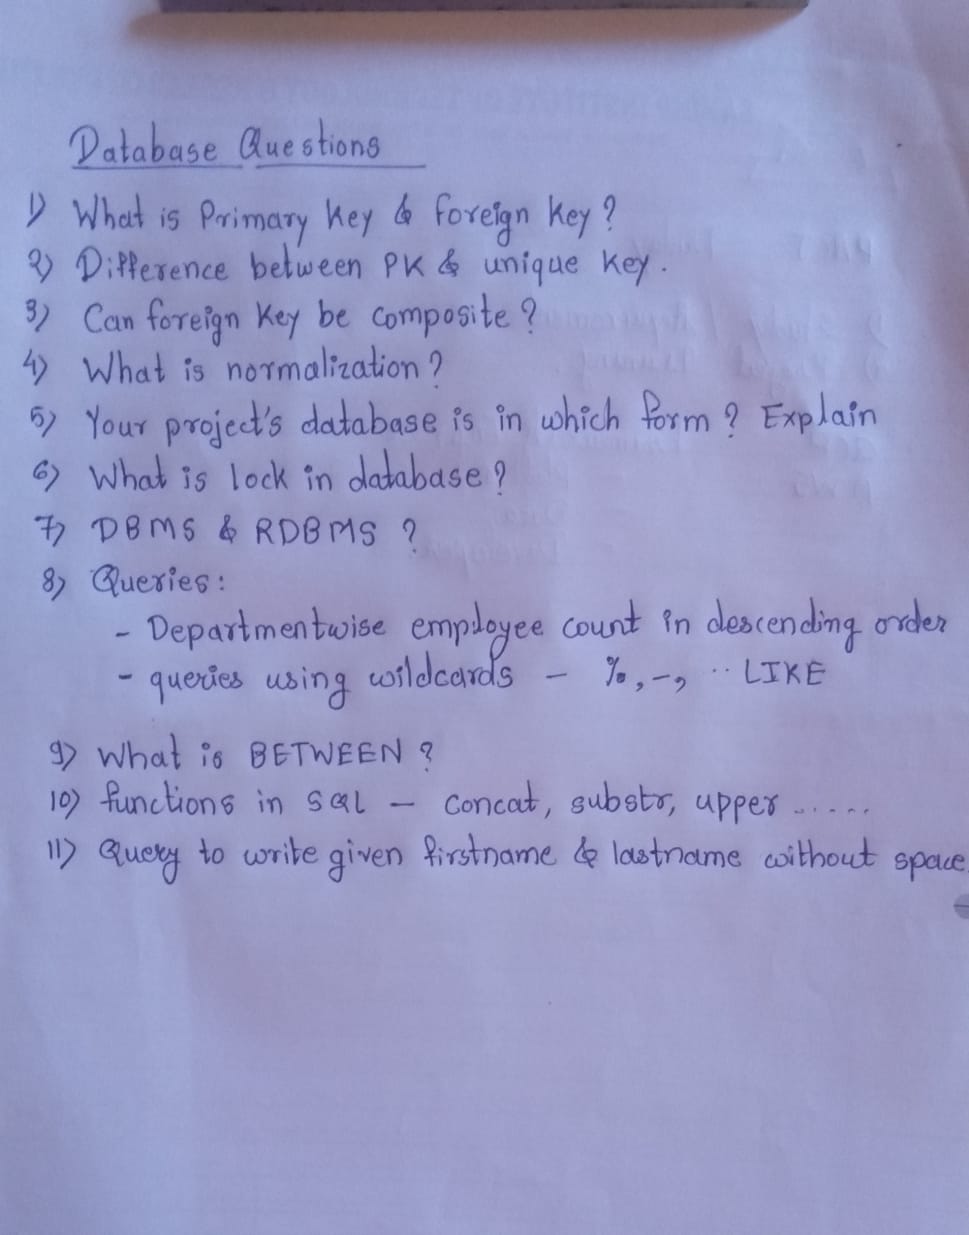 Database Questions
1) What is Primary Key & Foreign Key?
2) Difference between PK & unique key.
3) Can foreign key be composite?
4) What is normalization?
5) Your project's database is in which form? Explain
6) What is lock in database?
7) DBMS & RDBMS ?
8) Queries:
- Departmentwise employee count in descending order
- queries using wildcards - %, -, .. LIKE
9) What is BETWEEN ?
10) functions in SQL - concat, substr, upper .....
11) Query to write given firstname & lastname without space.